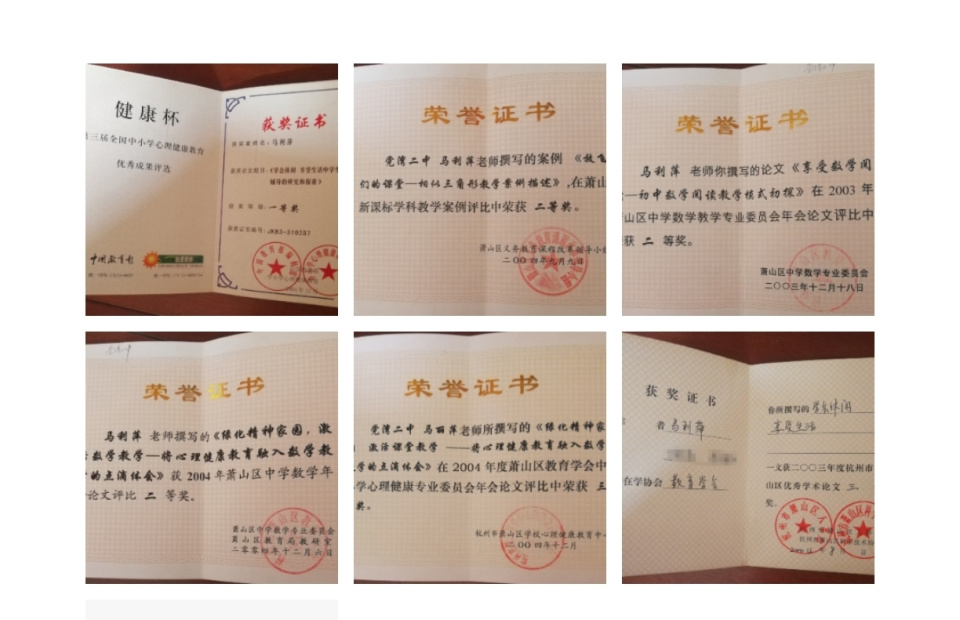 健康杯
三届全国中小学心理健康教育
优秀成果评选
中国教育报
获奖证书
马利萍
《学会休闲 享受生活中学生
辅导的研究和探索》
一等奖
荣誉证书
党湾二中 马利萍老师撰写的案例 《放飞
们的课堂—相似三角形教学案例描述》,在萧山
新课标学科教学案例评比中荣获 二等奖。
萧山区义务教育课程改革领导小组
二〇〇四年九月九日
荣誉证书
马利萍 老师你撰写的论文《享受数学阅
—初中数学阅读教学模式初探》在 2003 年
山区中学数学教学专业委员会年会论文评比中
获 二 等奖。
萧山区中学数学专业委员会
二〇〇三年十二月十八日
荣誉证书
马利萍 老师撰写的《绿化精神家园,激
数学教学—将心理健康教育融入数学教
的点滴体会》获 2004 年萧山区中学数学年
论文评比 二 等奖。
萧山区中学数学专业委员会
萧山区教育局教研室
二零零四年十二月六日
荣誉证书
党湾二中 马丽萍老师所撰写的《绿化精神家
激活课堂教学 ——将心理健康教育融入数学
学的点滴体会》在 2004 年度萧山区教育学会中
学心理健康专业委员会年会论文评比中荣获 三
奖。
杭州市萧山区学校心理健康教育中心
〇〇四年十二月
获奖证书
者 马利萍
在学协会 教育学会
你所撰写的 学会休闲
享受生活
一文获二〇〇三年度杭州市
山区优秀学术论文 三
奖。